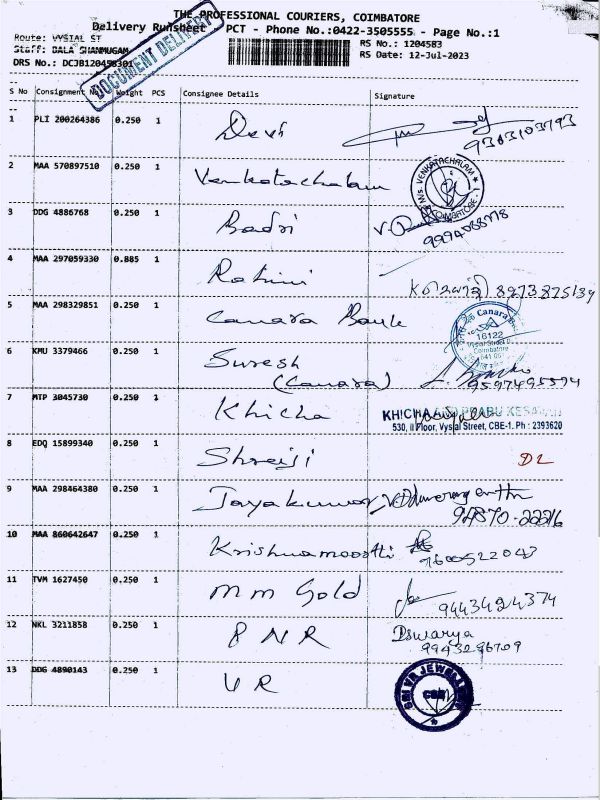 THE PROFESSIONAL COURIERS, COIMBATORE
Delivery Runsheet PCT - Phone No.:0422-3505555 - Page No.:1
Route: VYSIAL ST
RS No.: 1204583
Staff: BALA SHANMUGAM
RS Date: 12-Jul-2023
DRS No.: DCJB120458301
DOCUMENT DELIVERY
S No Consignment No Weight PCS Consignee Details Signature
1 PLI 200264386 0.250 1 Devi 9363103793
2 MAA 570897510 0.250 1 Venkatachalam
M/s. VENKATACHALAM COIMBATORE-1
3 DDG 4886768 0.250 1 Badri
4 MAA 297059330 0.885 1 Rohini 8973875139
5 MAA 298329851 0.250 1 Canara Bank
Canara
16122
Vysial Street
Coimbatore
641 001
6 KMU 3379466 0.250 1 Suresh
(Canara)
9597495594
7 MTP 3045730 0.250 1 Khicha
KHICHA AND PRABU KESAVAN
530, II Floor, Vysial Street, CBE-1. Ph : 2393620
8 EDQ 15899340 0.250 1 DL
9 MAA 298464380 0.250 1 Jayakumar
94870-22216
10 MAA 860642647 0.250 1 Krishnamoorthi
7600522043
11 TVM 1627450 0.250 1 MM Gold
9443424374
12 NKL 3211858 0.250 1 PNR
9943296709
13 DDG 4890143 0.250 1 VR
SRI VR JEWELLERY
CBE